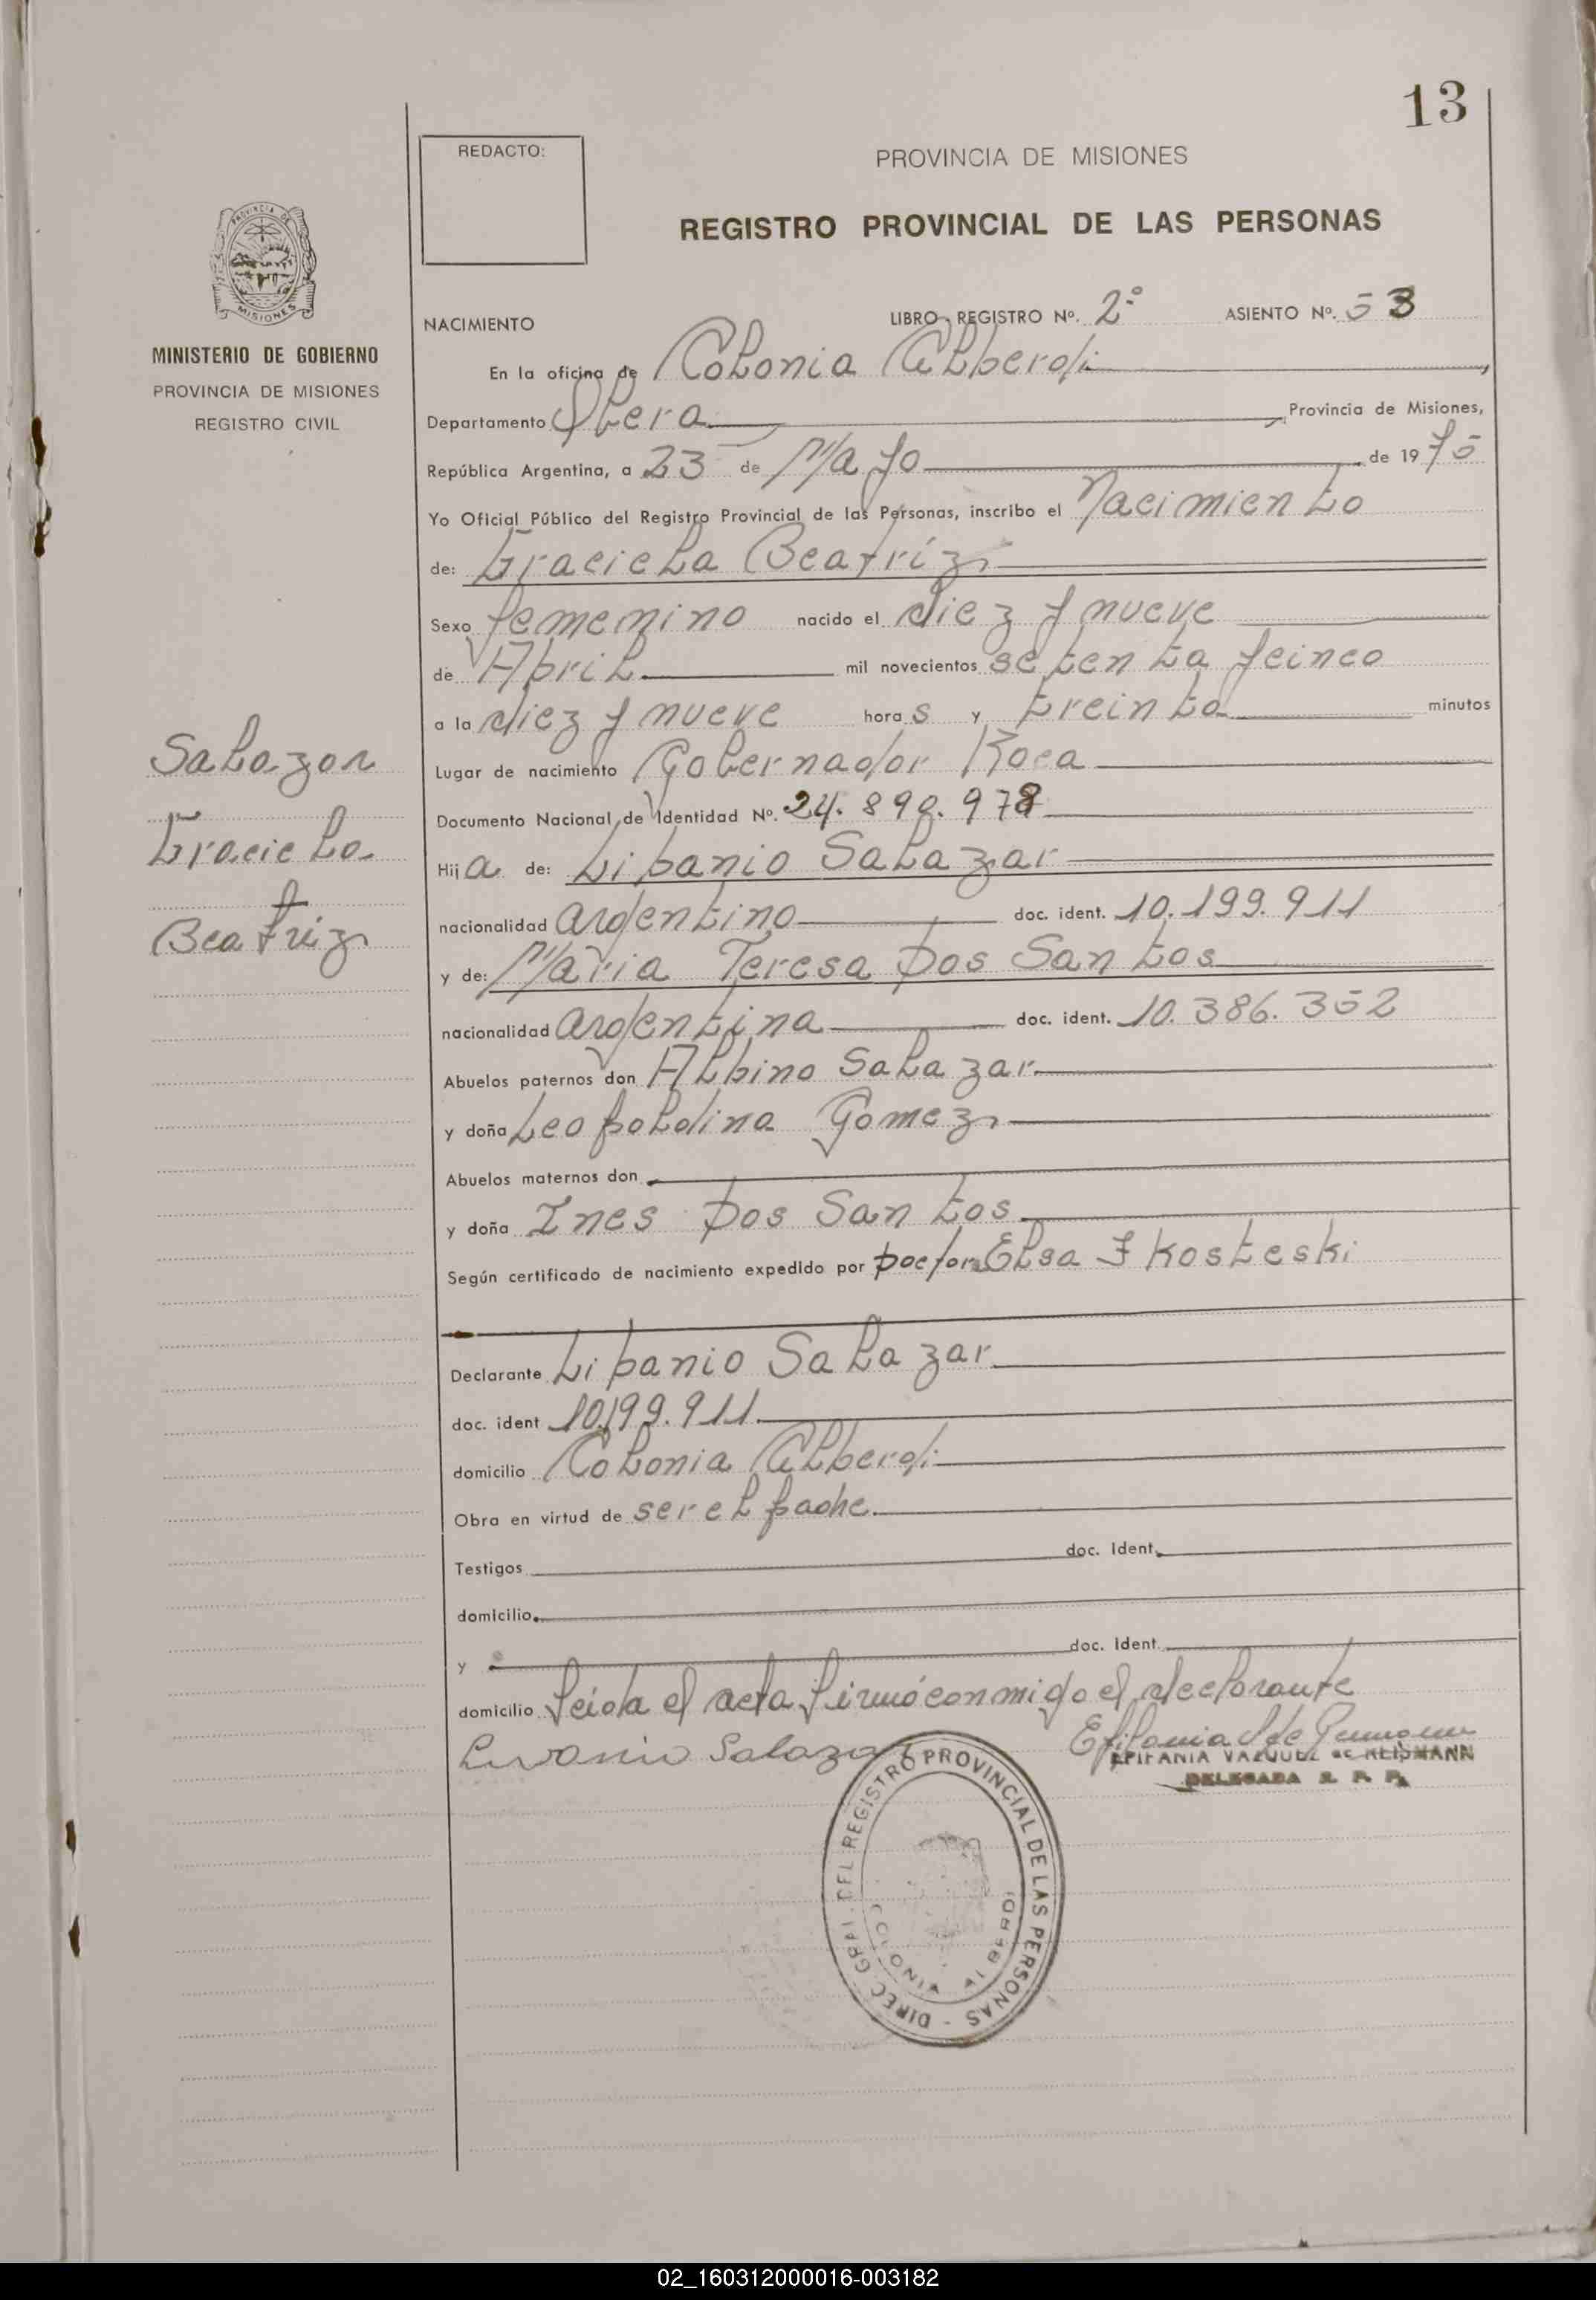 13
REDACTO:
PROVINCIA DE MISIONES
REGISTRO PROVINCIAL DE LAS PERSONAS
PROVINCIA DE
MISIONES
MINISTERIO DE GOBIERNO
PROVINCIA DE MISIONES
REGISTRO CIVIL
NACIMIENTO LIBRO - REGISTRO Nº. 2º ASIENTO Nº. 53
En la oficina de Colonia Alberdi,
Departamento Obera, Provincia de Misiones,
República Argentina, a 23 de Mayo de 1975
Yo Oficial Público del Registro Provincial de las Personas, inscribo el Nacimiento
de: Graciela Beatríz
Sexo femenino nacido el diez y nueve
de Abril mil novecientos setenta y cinco
a la diez y nueve hora s y treinta minutos
Lugar de nacimiento Gobernador Roca
Documento Nacional de Identidad Nº. 24.898.978
Hija de: Libanio Salazar
nacionalidad argentino doc. ident. 10.199.911
y de: Maria Teresa Dos Santos
nacionalidad argentina doc. ident. 10.386.352
Abuelos paternos don Albino Salazar
y doña Leopoldina Gomez
Abuelos maternos don
y doña Ines Dos Santos
Según certificado de nacimiento expedido por Doctora Elsa F Kosteski
Salazar
Graciela
Beatriz
Declarante Libanio Salazar
doc. ident 10.199.911.
domicilio Colonia Alberdi
Obra en virtud de ser el padre
Testigos doc. Ident.
domicilio
y doc. Ident.
domicilio Leida el acta firmó conmigo el declarante
Livanio Salazar
EPIFANIA VAZQUEZ de REISMANN
DELEGADA R. P. P.
DIREC. GRAL. DEL REGISTRO PROVINCIAL DE LAS PERSONAS -
COLONIA ALBERDI
02_160312000016-003182